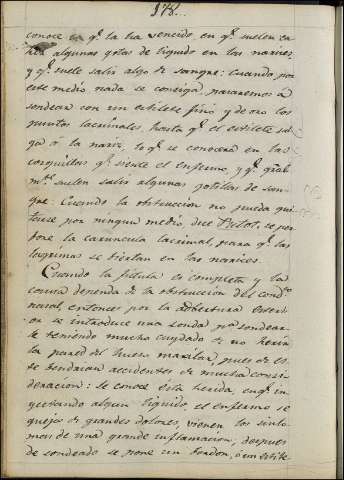 178...
conoce en q.e la ha vencido en q.e suelen ca
her algunas gotas de liquido en las narices,
y q.e suele salir algo de sangre: Cuando por
este medio nada se consiga, pasaremos á
sondear con un estilete fino y de oro los
puntos lacrimales, hasta q.e el estilete sal
ga á la nariz, lo q.e se conocerá en las
cosquillas q.e siente el enfermo, y q.e gral
m.te suelen salir algunas gotillas de san
gre: Cuando la obstruccion no pueda qui
tarse por ningun medio, dice Petit, se per
fore la caruncula lacrimal, para q.e las
lagrimas se viertan en las narices.
Cuando la fistula es completa y la
causa dependa de la obstruccion del cond.to
nasal, entonces por la abertura exteri
or se introduce una sonda p.a sondear
le teniendo mucho cuydado de no herir
la pared del hueso maxilar, pues de es
to vendrian accidentes de mucha consi
deracion: se conoce esta herida, en q.e in
yectando algun liquido, el enfermo se
queja de grandes dolores, vienen los sinto
mas de una grande inflamacion; despues
de sondeado se pone un bordon, ó un estile